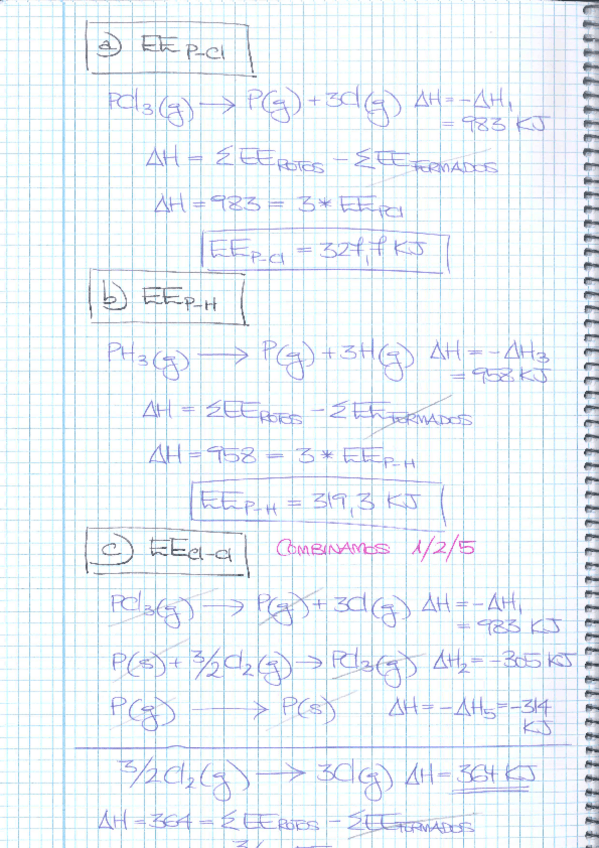 a) EE P-Cl
PCl₃(g) → P(g) + 3Cl(g) ΔH = -ΔH₁
= 983 KJ
ΔH = ΣEE ROTOS - ΣEE FORMADOS
ΔH = 983 = 3 * EE PCl
EE P-Cl = 327,7 KJ
b) EE P-H
PH₃(g) → P(g) + 3H(g) ΔH = -ΔH₃
= 958 KJ
ΔH = ΣEE ROTOS - ΣEE FORMADOS
ΔH = 958 = 3 * EE P-H
EE P-H = 319,3 KJ
c) EE Cl-Cl COMBINAMOS 1/2/5
PCl₃(g) → P(g) + 3Cl(g) ΔH = -ΔH₁
= 983 KJ
P(s) + 3/2Cl₂(g) → PCl₃(g) ΔH₂ = -305 KJ
P(g) → P(s) ΔH = -ΔH₅ = -314
KJ
3/2Cl₂(g) → 3Cl(g) ΔH = 364 KJ
ΔH = 364 = ΣEE ROTOS - ΣEE FORMADOS